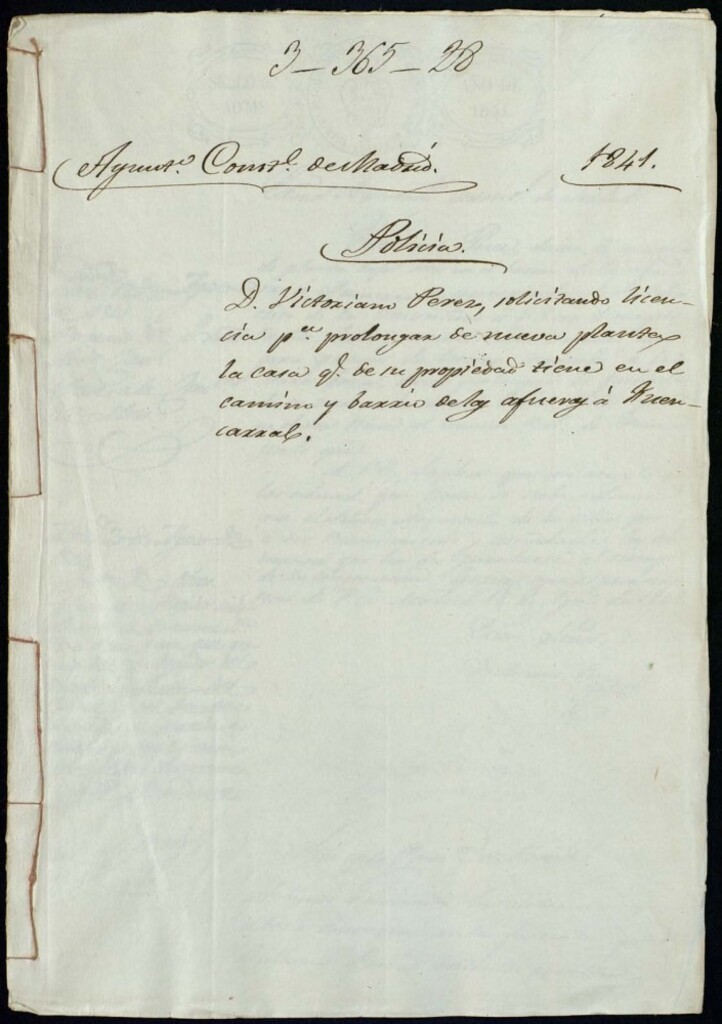 3-365-28
Ayuntº. Constl. de Madrid. 1841.
Policia.
D. Victoriano Perez, solicitando licen-
cia pª prolongar de nueva planta
la casa q. de su propiedad tiene en el
camino y barrio de las afueras á Fuen-
carral.